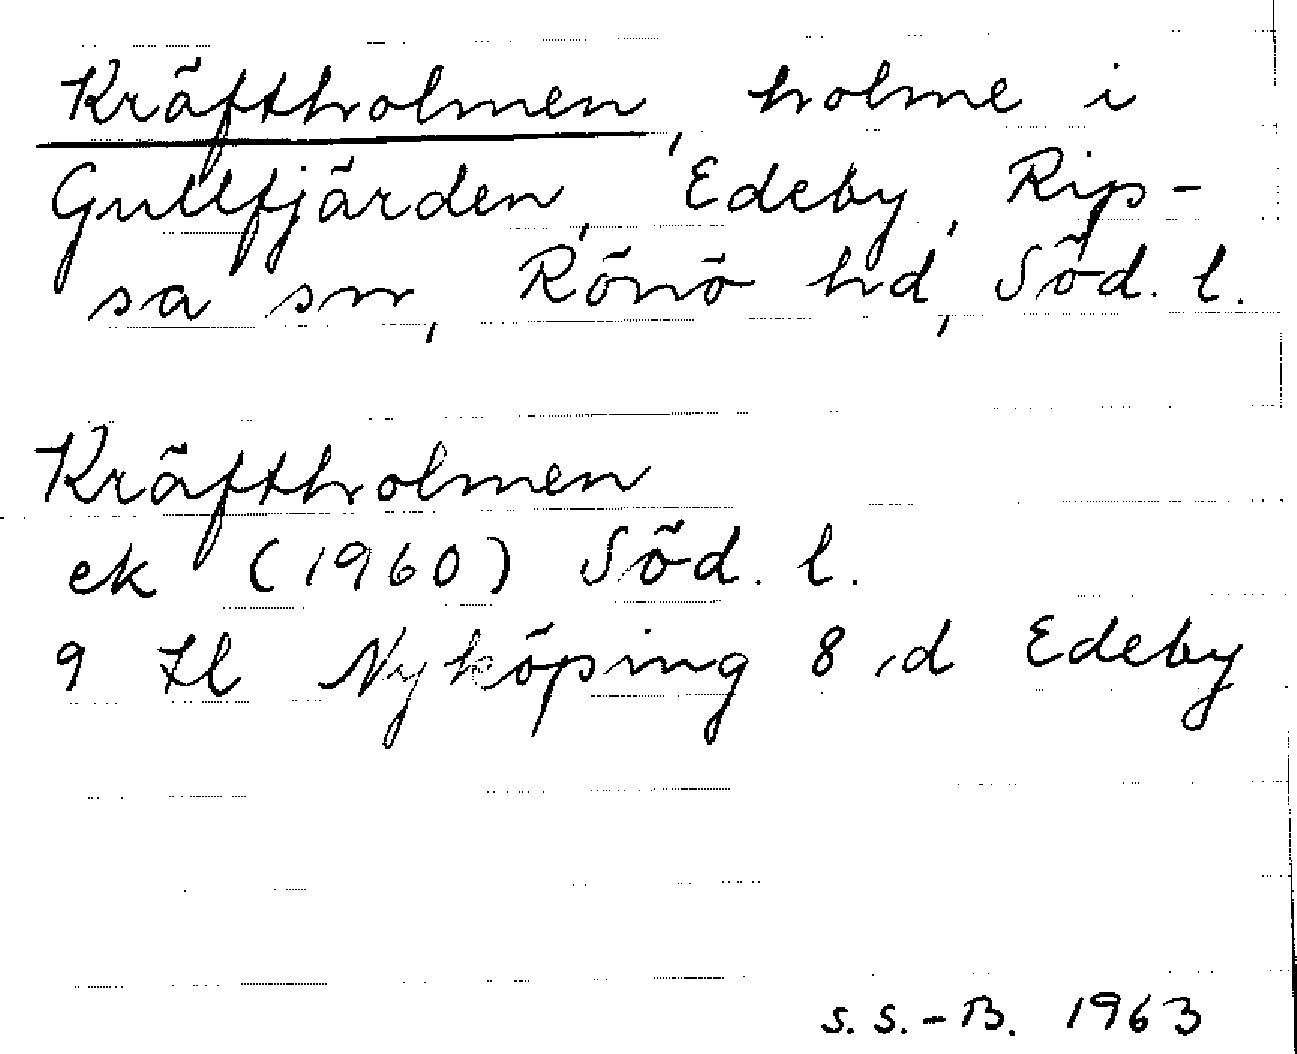 Kräftholmen, holme i
Gullfjärden, Edeby, Rip-
sa sn, Rönö hd, Söd. l.
Kräftholmen
ek (1960) Söd. l.
9 H l Nyköping 8 d Edeby
S. S.-B. 1963